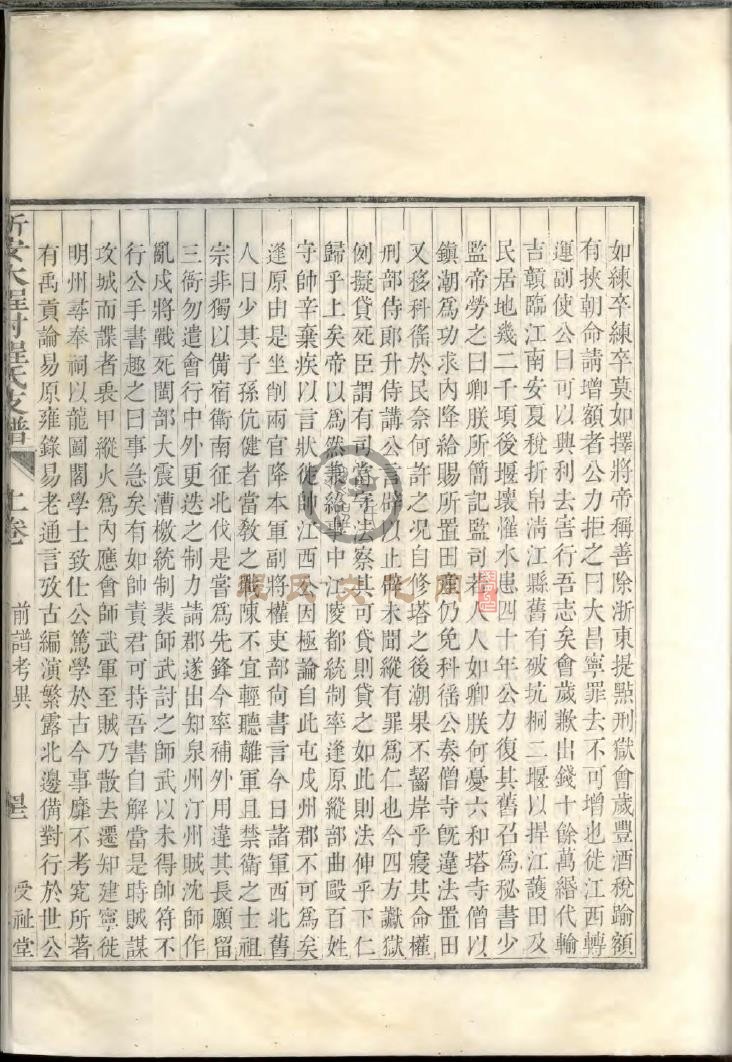 如練卒練卒莫如擇將帝稱善除浙東提㸃刑獄會歲豐酒稅踰額
有挾朝命請增額者公力拒之曰大昌寧罪去不可增也徙江西轉
運副使公曰可以興利去害行吾志矣會歲歉出錢十餘萬緡代輸
吉贛臨江南安夏稅折帛淸江縣舊有破坑桐二堰以捍江護田及
民居地幾二千頃後堰壞罹水患四十年公力復其舊召爲秘書少
監帝勞之曰卿朕所簡記監司若人人如卿朕何憂六和塔寺僧以
鎭潮爲功求內降給賜所置田産仍免科徭公奏僧寺旣違法置田
又移科徭於民奈何許之况自修塔之後潮果不齧岸乎寢其命權
刑部侍郞升侍講公言辟以止辟未聞縱有罪爲仁也今四方讞獄
例擬貸死臣謂有司當守法察其可貸則貸之如此則法伸乎下仁
歸乎上矣帝以爲然兼給事中江陵都統制率逢原縱部曲毆百姓
守帥辛棄疾以言狀徙帥江西公因極論自此屯戍州郡不可爲矣
逢原由是坐削兩官降本軍副將權吏部尙書言今日諸軍西北舊
人日少其子孫伉健者當敎之戰陳不宜輕聽離軍且禁衛之士祖
宗非獨以備宿衛南征北伐是嘗爲先鋒今率補外用違其長願留
三衙勿遣會行中外更迭之制力請郡遂出知泉州汀州賊沈師作
亂戍將戰死閩部大震漕檄統制裴師武討之師武以未得帥符不
行公手書趣之曰事急矣有如帥責君可持吾書自解當是時賊謀
攻城而諜者裹甲縱火爲內應會師武軍至賊乃散去遷知建寧徙
明州尋奉祠以龍圖閣學士致仕公篤學於古今事靡不考究所著
有禹貢論易原雍錄易老通言攷古編演繁露北邊備對行於世公
新安大程村程氏支譜 上卷 前譜考異 受祉堂